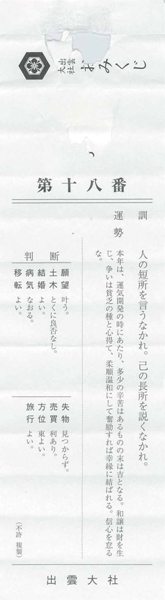 出雲大社 おみくじ
第十八番
訓 人の短所を言うなかれ。己の長所を説くなかれ。
運勢 本年は、運気開発の時にあたり、多少の辛苦はあるものの末は吉となる。和譲は財を生
じ、争いは貧乏の種と心得て、柔順温和にして奮励すれば幸縁に結ばれる。信心を怠る
な。
判断
願望 叶う。
土木 とくに良否なし。
結婚 よい。
病気 なおる。
移転 よい。
失物 見つからず。
売買 利あり。
方位 東よい。
旅行 よい。
(不許 複製)
出雲大社